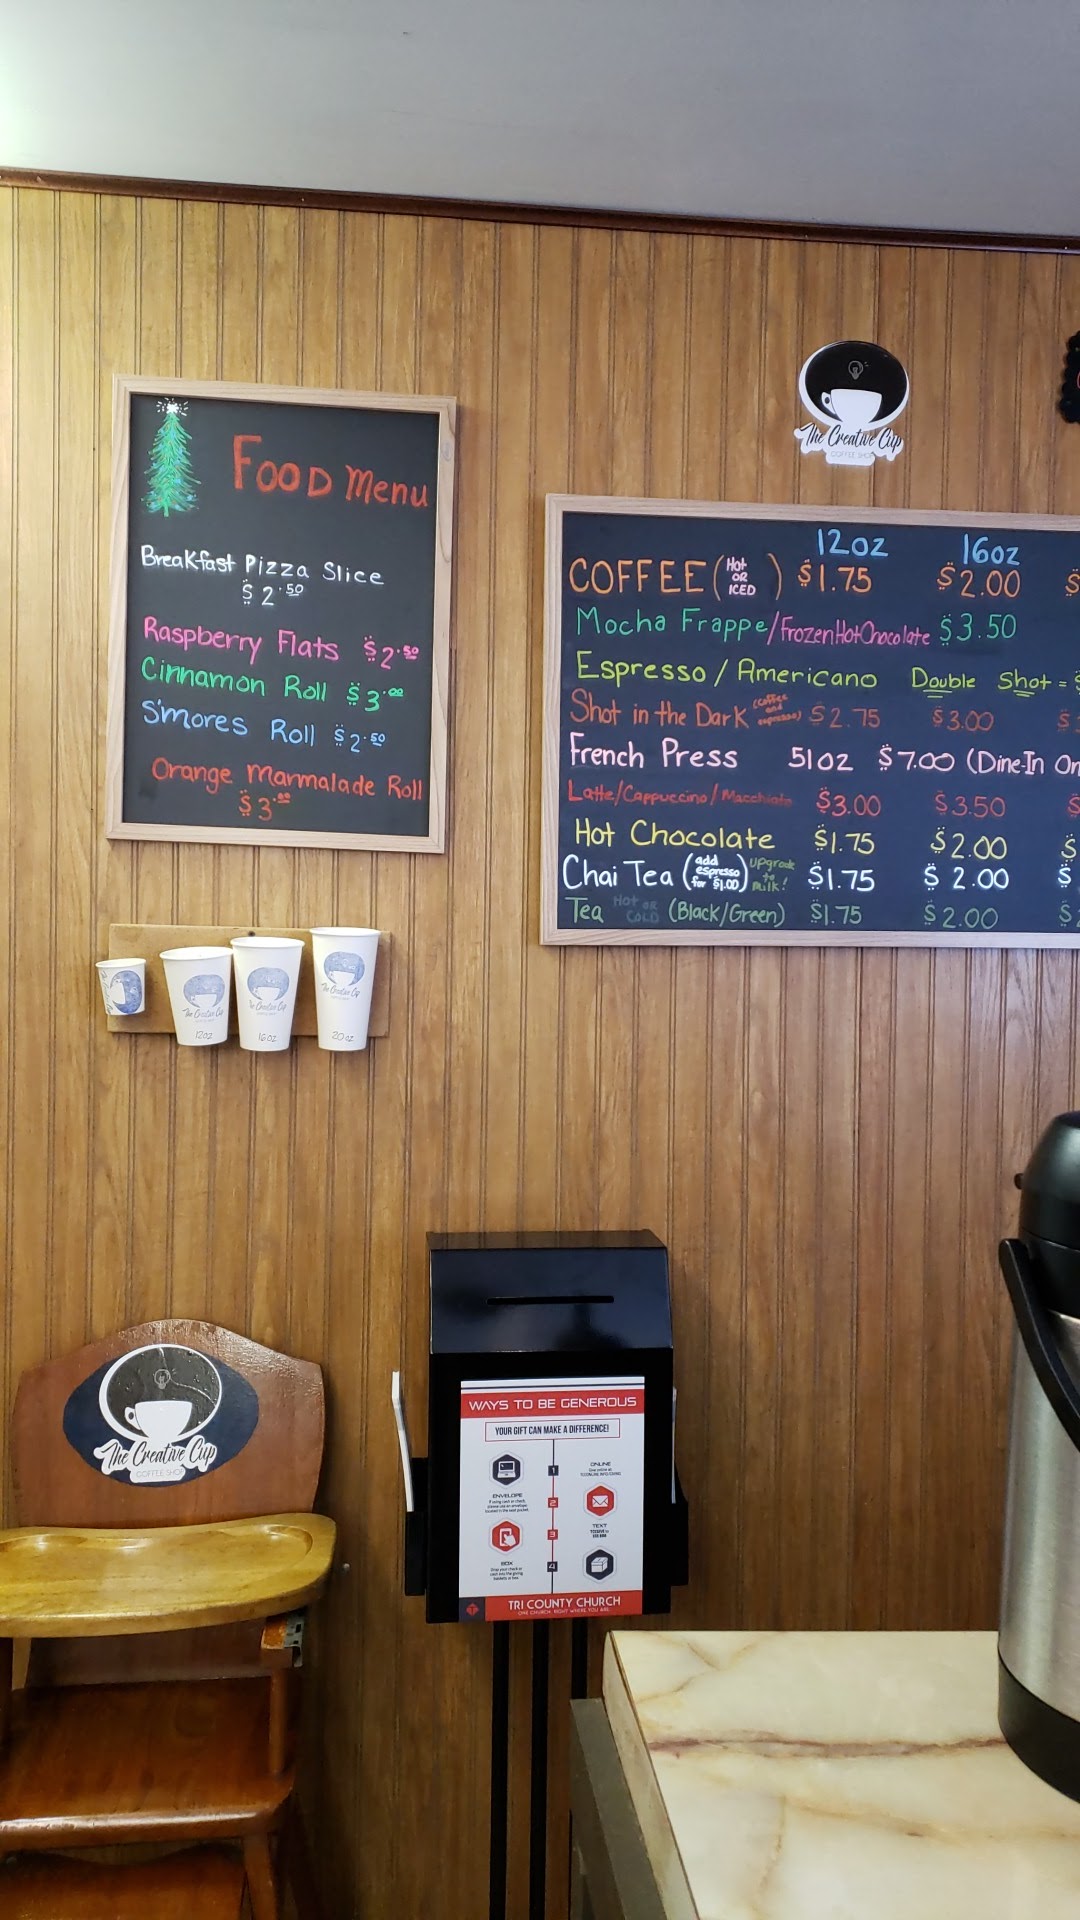 The Creative Cup
COFFEE SHOP
Food Menu
Breakfast Pizza Slice
$2.50
Raspberry Flats $2.50
Cinnamon Roll $3.00
S'mores Roll $2.50
Orange Marmalade Roll
$3.00
12oz 16oz
COFFEE (Hot OR ICED) $1.75 $2.00 $
Mocha Frappe/Frozen Hot Chocolate $3.50
Espresso / Americano Double Shot = $
Shot in the Dark (coffee and espresso) $2.75 $3.00 $
French Press 51oz $7.00 (Dine-In On
Latte/Cappuccino/Macchiato $3.00 $3.50 $
Hot Chocolate $1.75 $2.00 $
Chai Tea (add espresso for $1.00) upgrade to milk! $1.75 $2.00 $
Tea HOT OR COLD (Black/Green) $1.75 $2.00 $
The Creative Cup
12oz
The Creative Cup
16oz
The Creative Cup
20oz
The Creative Cup
COFFEE SHOP
WAYS TO BE GENEROUS
YOUR GIFT CAN MAKE A DIFFERENCE!
1
ONLINE
ENVELOPE
2
TEXT
3
BOX
4
TRI COUNTY CHURCH
ONE CHURCH, RIGHT WHERE YOU ARE.